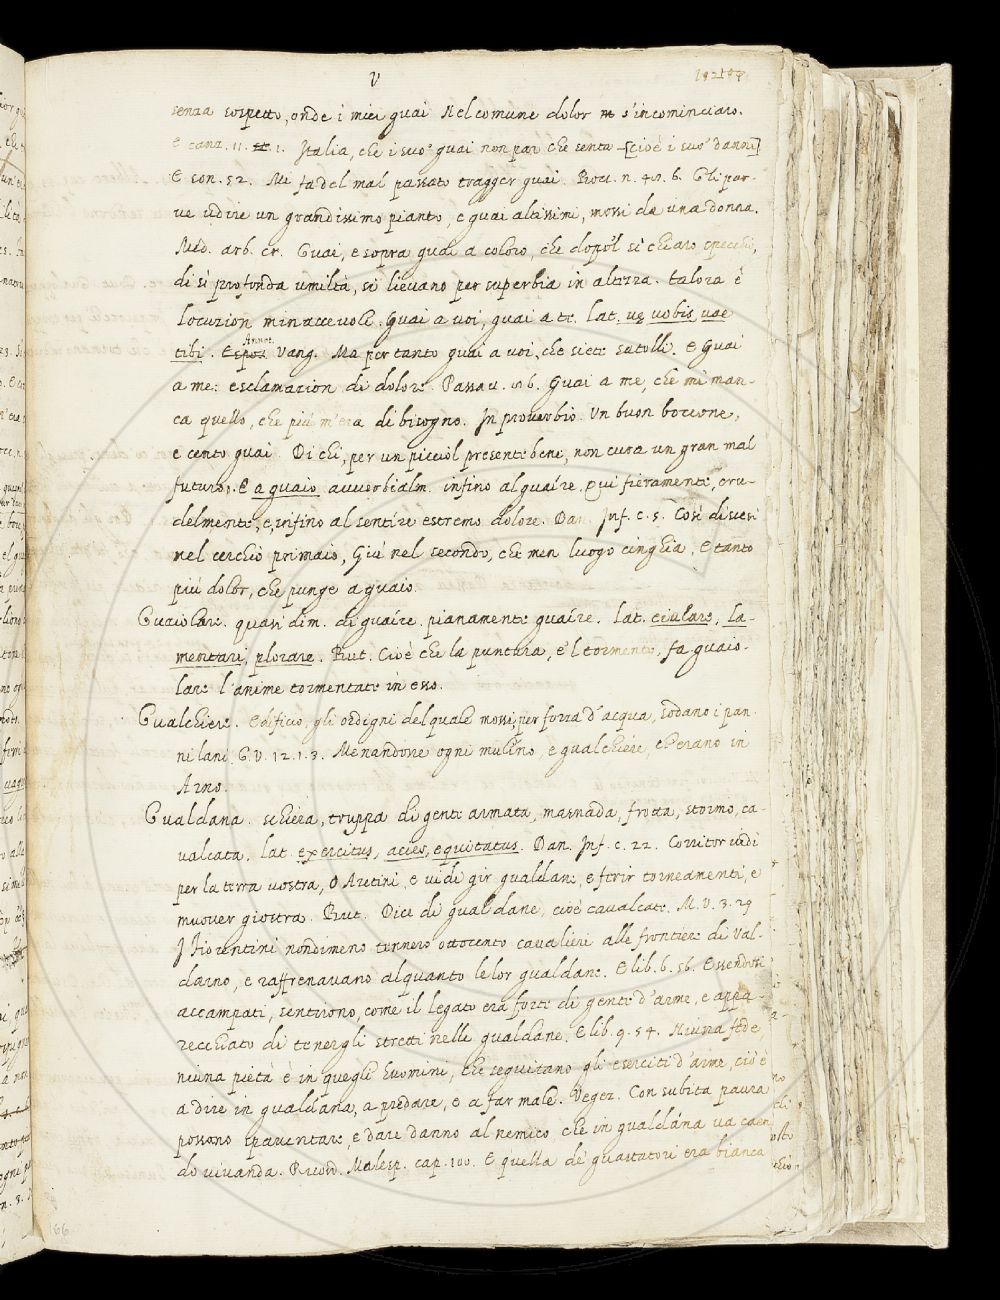 V
senza sospetto, onde i miei guai Nel comune dolor s'incominciaro.
E canz. 11. 1. Italia, che i suo' guai non par che senta [cioè i suo' danni]
E son. 52. Mi fa del mal passato tragger guai. Bocc. n. 48. 6. Gli par-
ve udire un grandissimo pianto, e guai altissimi, mossi da una donna.
Med. arb. cr. Guai, e sopra guai a coloro, che dopo'l sì chiaro specchio,
di sì profonda umiltà, si lievano per superbia in altezza. talora è
locuzion minaccevole. Guai a voi, guai a te. Lat. vę vobis, vae
tibi. Annot. Vang. Ma per tanto guai a voi, che siete satolli. E Guai
a me: esclamazion di dolore. Passav. 106. Guai a me, che mi man-
ca quello, che più m'era di bisogno. In proverbio. Un buon boccone,
e cento guai. Di chi, per un picciol presente bene, non cura un gran mal
futuro. E a guaio avverbialm. infino al guaire. qui fieramente, cru-
delmente, e, infino al sentire estremo dolore. Dan. Inf. c. 5. Così discesi
nel cerchio primaio, Giù nel secondo, che men luogo cinghia, E tanto
più dolor, che punge a guaio.
Guaiolare. quasi dim. di guaire. pianamente guaire. Lat. eiulare, la-
mentari, plorare. But. Cioè che la puntura, e'l tormento, fa guaio-
lare l'anime tormentate in esso.
Gualchiera. Edificio, gli ordigni del quale mossi per forza d'acqua, sodano i pan-
ni lani. G. V. 12. 1. 3. Menandone ogni mulino, e gualchiere, ch'erano in
Arno.
Gualdana. schiera, truppa di gente armata, masnada, frotta, stormo, ca-
valcata. Lat. exercitus, acies, equitatus. Dan. Inf. c. 22. Corritor vidi
per la terra vostra, O Aretini, e vidi gir gualdane, e ferir torneamenti, e
muover giostra. But. Dice di gualdane, cioè cavalcate. M. V. 3. 29
I Fiorentini nondimeno tennero ottocento cavalieri alle frontiere di Val-
darno, e raffrenavano alquanto le lor gualdane. E lib. 6. 56. Essendosi
accampati, sentirono, come il legato era forte di gente d'arme, e appa-
recchiato di tenergli stretti nelle gualdane. E lib. 9. 54. Niuna fede,
niuna pietà è in quegli huomini, che seguitano gli eserciti d'arme, cioè
a dire in gualdana, a predare, e a far male. Vegez. Con subita paura
possono spaventare, e dare danno al nemico, che in gualdána va caen
do vivanda. Ricord. Malesp. cap. 100. E quella de' guastatori era bianca
66